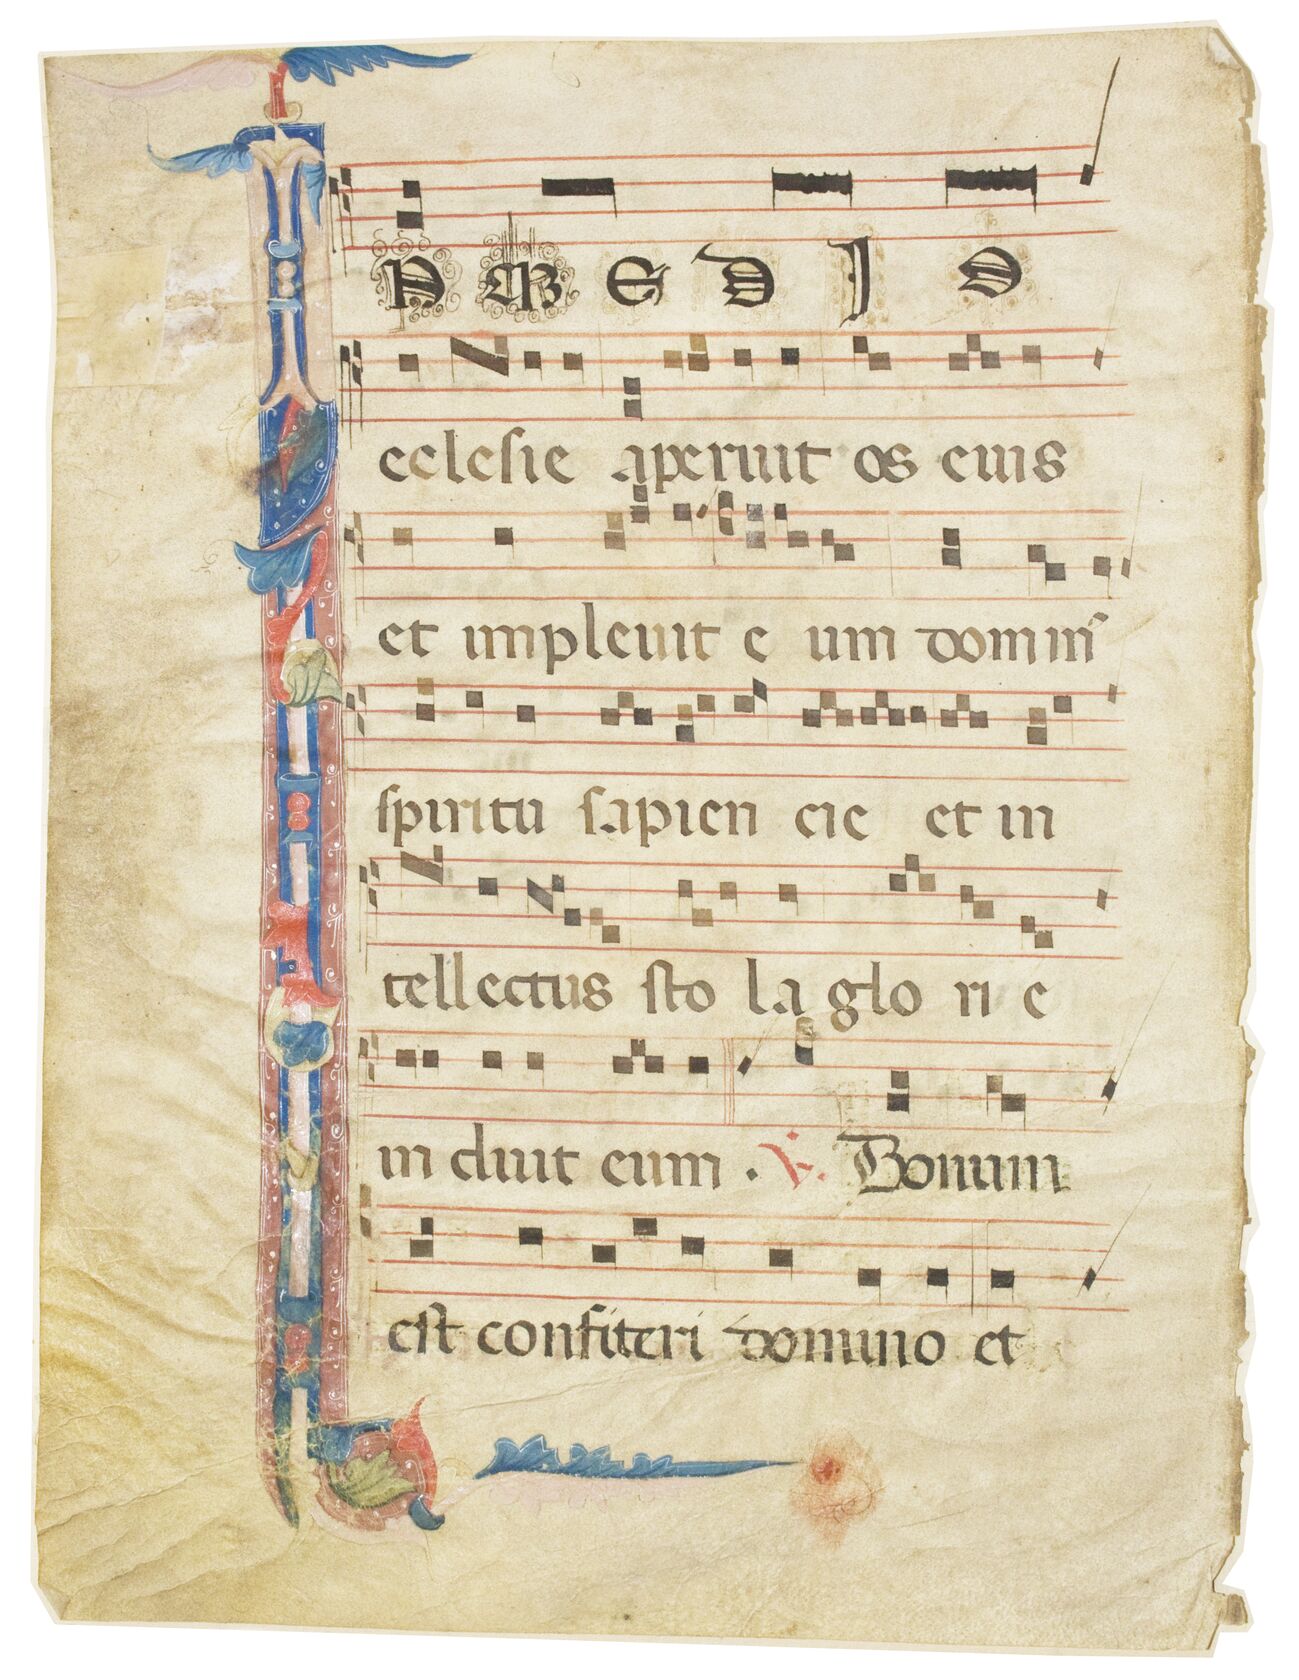 N M E D I O
ecleſie aperuit os eius
et impleuit e um domin⁹
ſpiritu ſapien cie et in
tellectus ſto la glo ri e
in duit eum . V. Bonum
eſt confiteri domino et